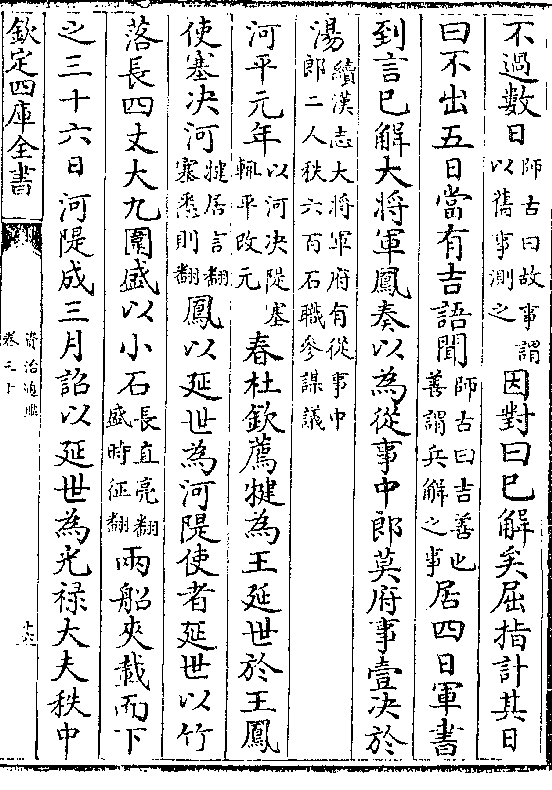 不過數日師古曰故事謂以舊事測之因對曰已解矣屈指計其日
曰不出五日當有吉語聞師古曰吉善也善謂兵解之事居四日軍書
到言已解大将軍鳳奏以為從事中郎莫府事壹决於
湯續漢志大将軍府有從事中郎二人秩六百石職參謀議
河平元年以河决隄塞輒平改元春杜欽薦犍為王延世於王鳳
使塞决河犍居言翻塞悉則翻鳳以延世為河隄使者延世以竹
落長四丈大九圍盛以小石長直亮翻盛時征翻兩船夾載而下
之三十六日河隄成三月詔以延世為光禄大夫秩中
欽定四庫全書
資治通鑑
卷三十
十六